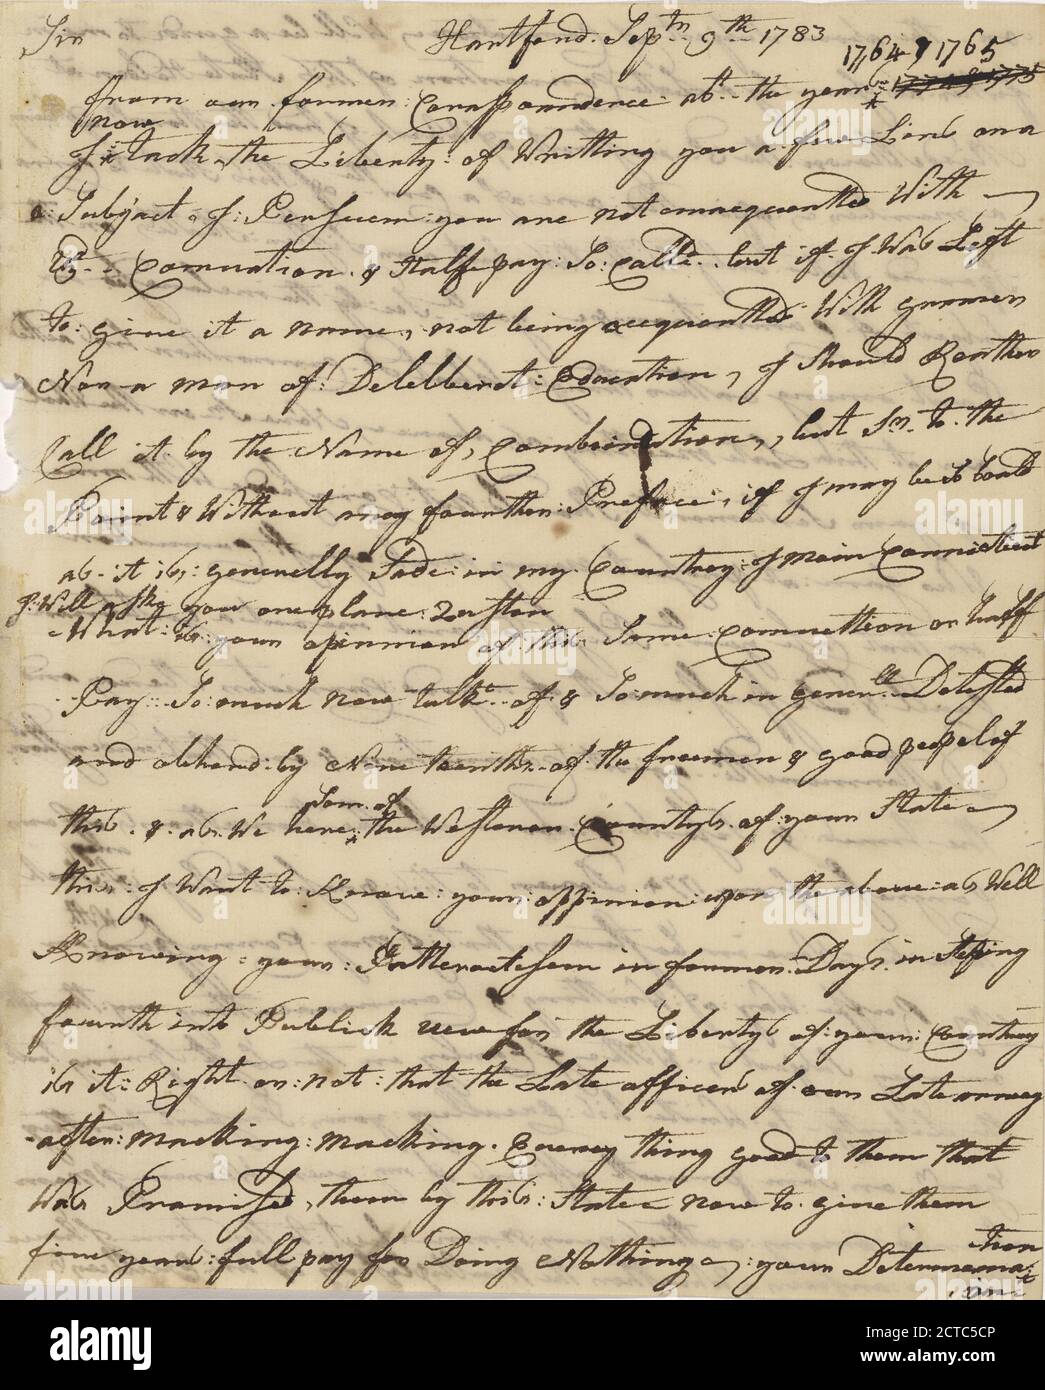 Sir
Hartford Septr 9th 1783
1764 & 1765
from our former Corrasponndence abt the years 1774 & 1775
now
I tack the Liberty of Writting you a few Lines on a
Subject I Persuem you are not onnacquantted With
Comutation & Halfe pay So Calld but if I Was Left
to give it a name, not being acequantted With grammer
Nor a man of Delebberet Education, I Should Reather
Call it by the Name of Combination, but Sir to the
Point & Without any fourther Preface, if I may be So boald
as it is generelly Sade in my Countrey I mein Connecticut
I Will ask you one plane Question
What is your opinnion of this Same Comuttion or halff
Pay So much now talkt of & So much in generll Detested
and abhord by Nine tenths of the freemen & good peopel of
Som of
this & as We here the Westeron Countys of your State
this I Want to Know your oppinion upon the above as Well
Knowing your Patteroetisem in former Days in Steping
fourth into Publick vew for the Libertys of your Contrey
is it Right or not that the Late officers of our Late armey
after macking macking Everey thing good to them that
Was Promised them by this State now to give them
five years full pay for Doing Nothing, your Determina
tion
alamy
a
alamy
Image ID: 2CTC5CP
www.alamy.com